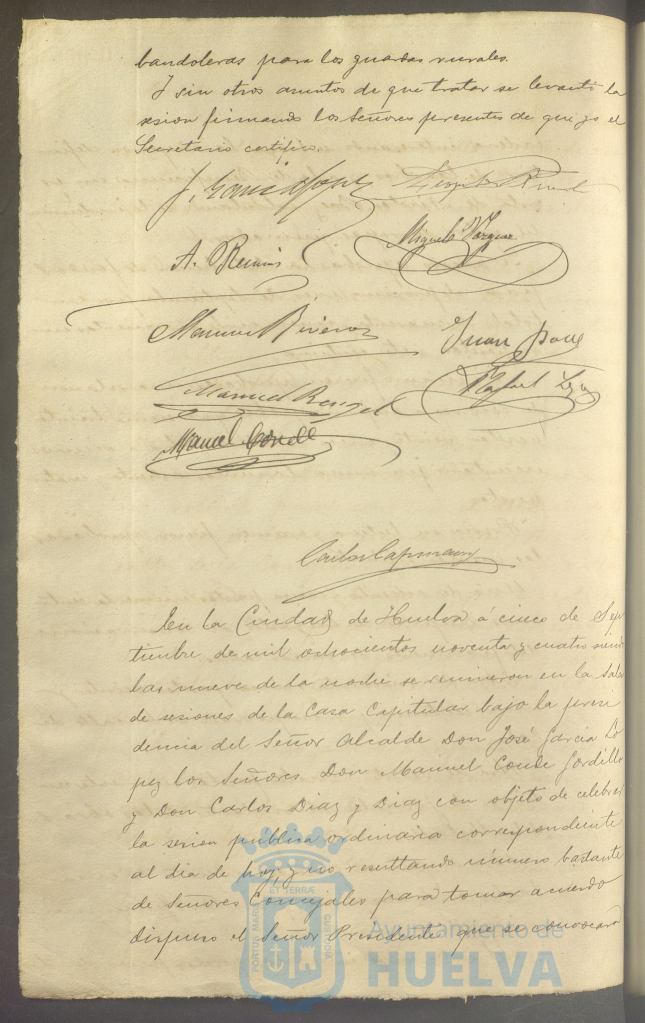 bandoleras para los guardas rurales.
Y sin otros asuntos de que tratar se levantó la
sesion firmando los Señores presentes de que yo el
Secretario certifico.
J. García López
A. Miguel Vázquez
Manuel
Juan
Manuel Rengel
Rafael
Manuel Conde
Carlos Capmany
En la Ciudad de Huelva á cinco de Sep
tiembre de mil ochocientos noventa y cuatro siendo
las nueve de la noche se reunieron en la Sala
de sesiones de la Casa Capitular bajo la presi
dencia del Señor Alcalde Don José García Ló
pez los Señores Don Manuel Conde Gordillo
y Don Carlos Diaz y Diaz con objeto de celebrar
la sesion publica ordinaria correspondiente
al dia de hoy; y no resultando número bastante
de Señores Concejales para tomar acuerdo
dispuso el Señor Presidente que se convocara
PORTUS MARIS ET TERRÆ CUSTODIA
Ayuntamiento de
HUELVA